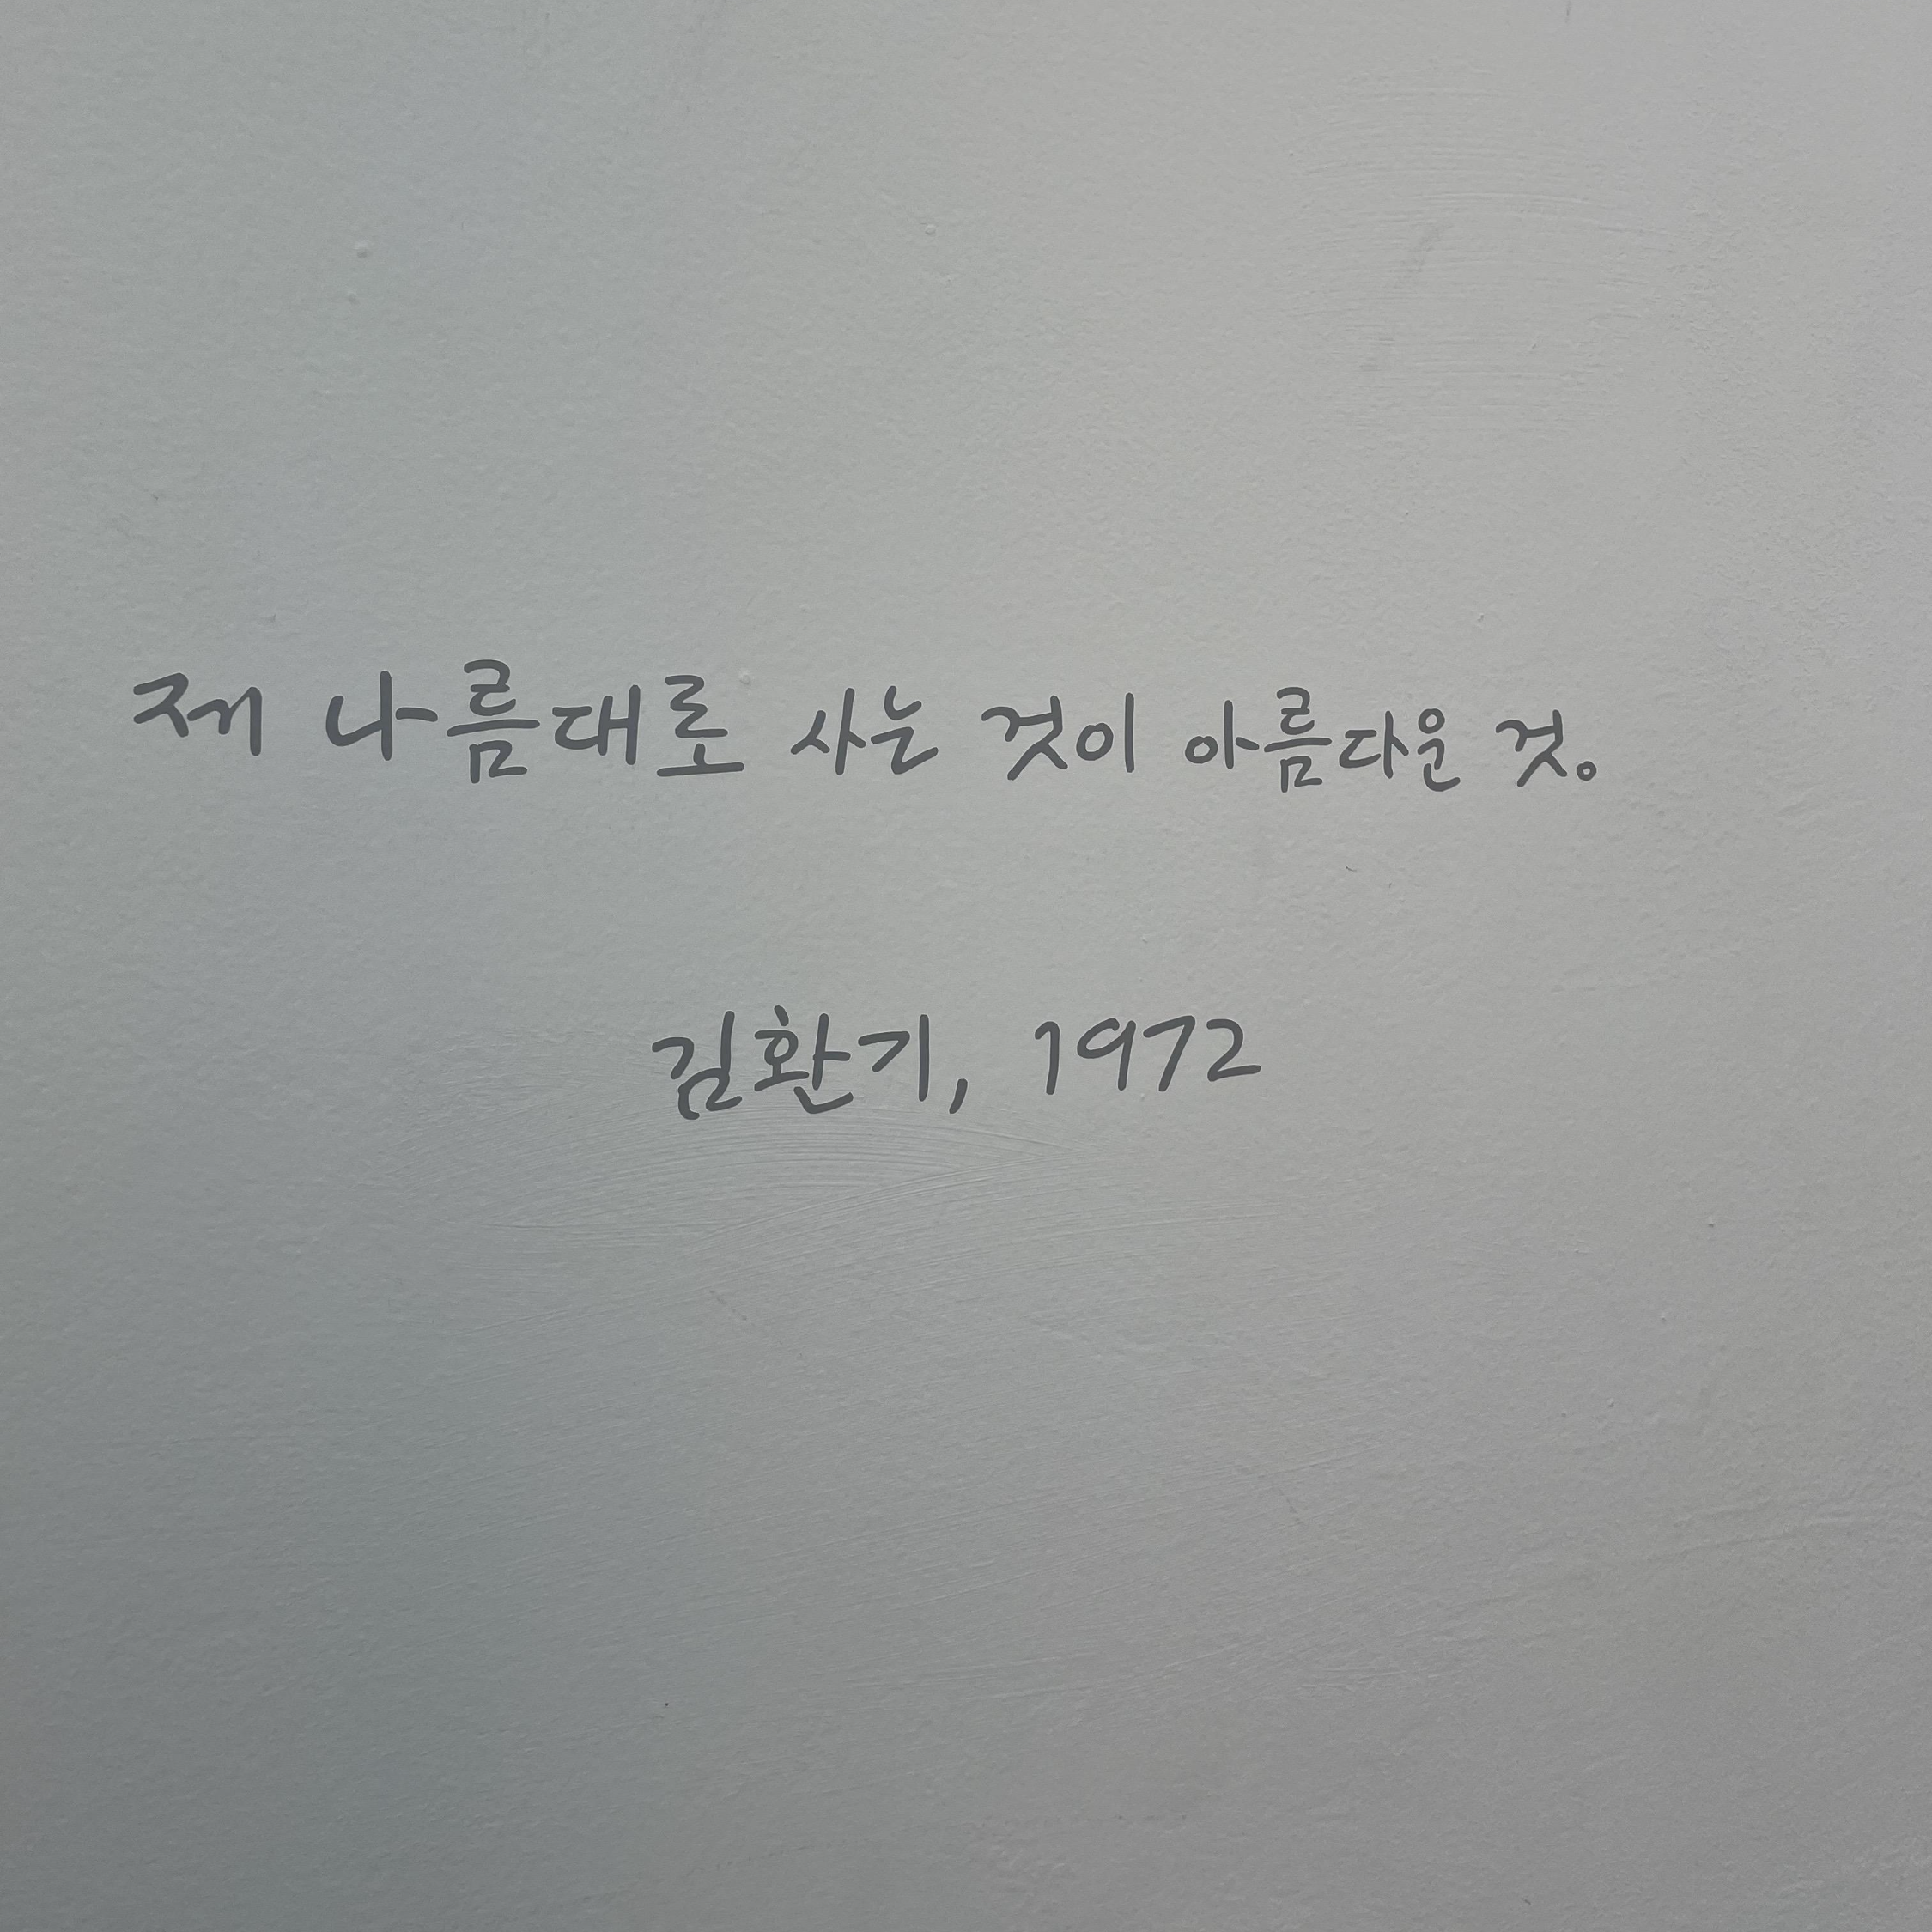 제 나름대로 사는 것이 아름다운 것.
김환기, 1972